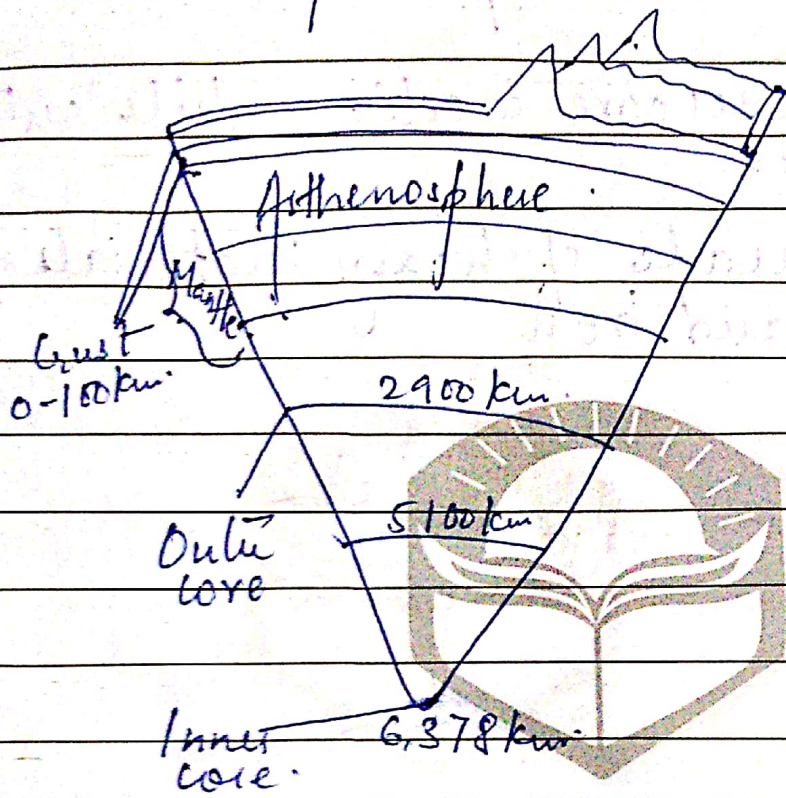 Asthenosphere.
Mantle
Crust
0-100km.
2900 km.
5100 km
Outer
core
Inner
core.
6,378 km.